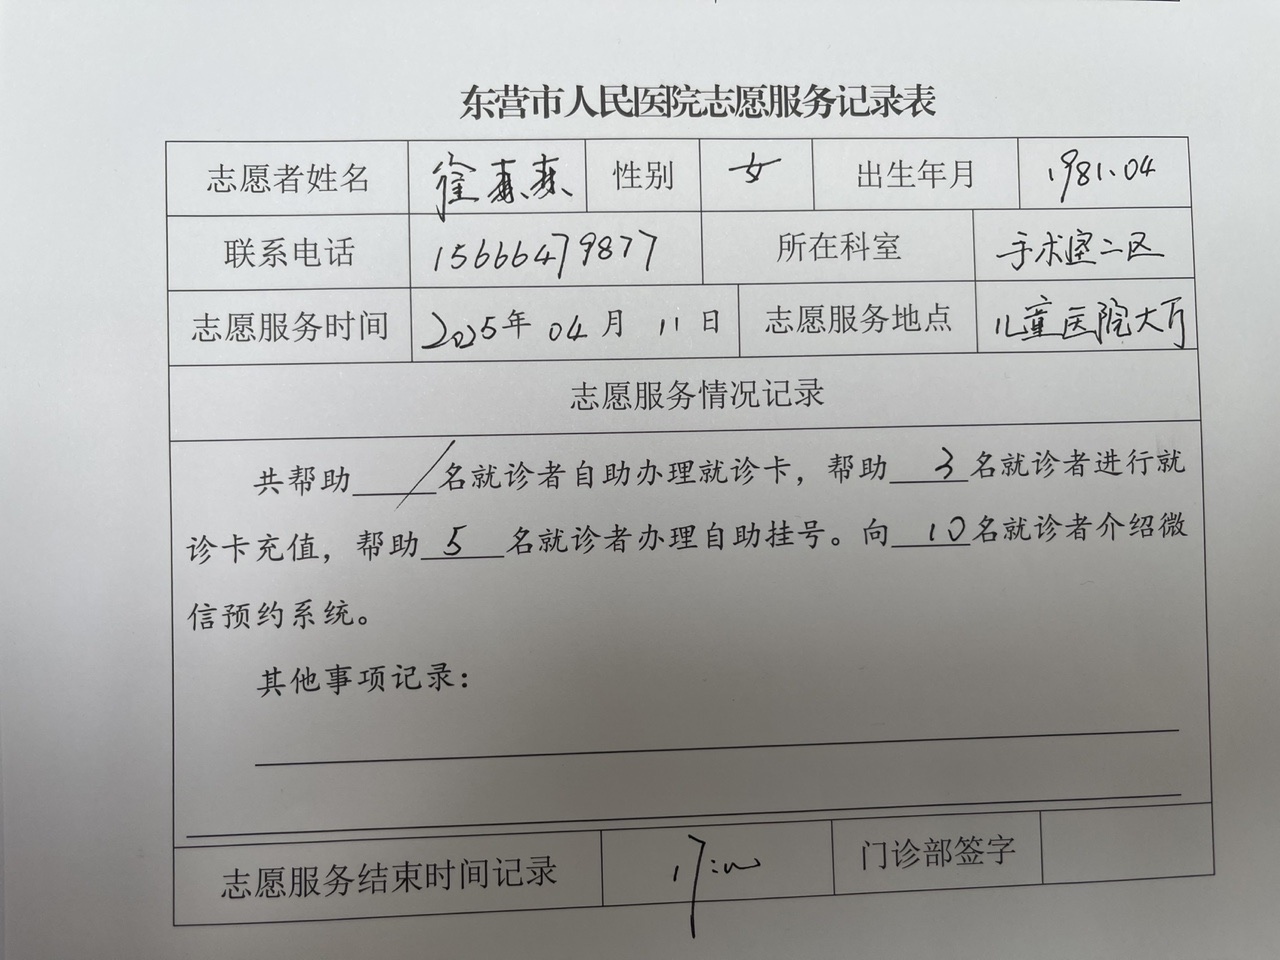 东营市人民医院志愿服务记录表
志愿者姓名 徐 性别 女 出生年月 1981.04
联系电话 15666479877 所在科室 手术室二区
志愿服务时间 2025年 04 月 11 日 志愿服务地点 儿童医院大厅
志愿服务情况记录
共帮助 / 名就诊者自助办理就诊卡，帮助 3 名就诊者进行就
诊卡充值，帮助 5 名就诊者办理自助挂号。向 10 名就诊者介绍微
信预约系统。
其他事项记录：
志愿服务结束时间记录 17:00 门诊部签字